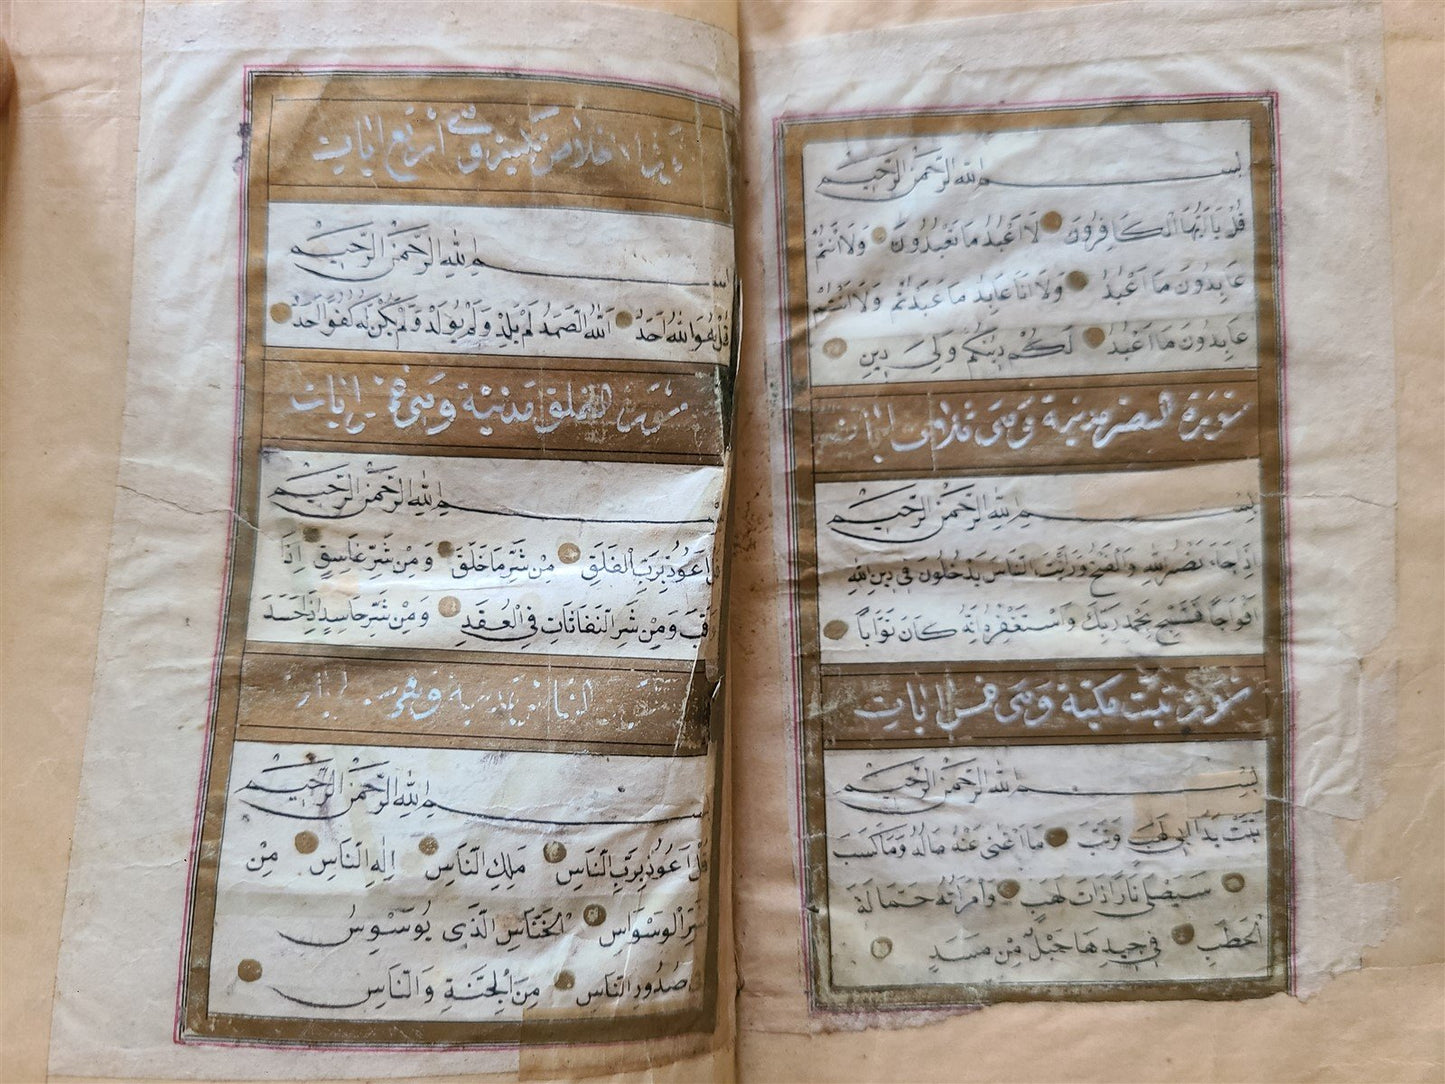 بسم الله الرحمن الرحيم
قُلْ يَا اَيُّهَا الْكَافِرُونَ لَا اَعْبُدُ مَا تَعْبُدُونَ وَلَا اَنْتُمْ
عَابِدُونَ مَا اَعْبُدُ وَلَا اَنَا عَابِدٌ مَا عَبَدْتُمْ وَلَا اَنْتُمْ
عَابِدُونَ مَا اَعْبُدُ لَكُمْ دِينُكُمْ وَلِيَ دِينِ
سورة النصر مدنية وهى ثلاث ايات
بِسْمِ اللهِ الرَّحْمَنِ الرَّحِيمِ
اِذَا جَاءَ نَصْرُ اللهِ وَالْفَتْحُ وَرَاَيْتَ النَّاسَ يَدْخُلُونَ فِى دِينِ اللهِ
اَفْوَاجًا فَسَبِّحْ بِحَمْدِ رَبِّكَ وَاسْتَغْفِرْهُ اِنَّهُ كَانَ تَوَّابًا
سورة تبت مكية وهى خمس ايات
بِسْمِ اللهِ الرَّحْمَنِ الرَّحِيمِ
تَبَّتْ يَدَا اَبِى لَهَبٍ وَتَبَّ مَا اَغْنَى عَنْهُ مَالُهُ وَمَا كَسَبَ
سَيَصْلَى نَارًا ذَاتَ لَهَبٍ وَامْرَاَتُهُ حَمَّالَةَ
الْحَطَبِ فِى جِيدِهَا حَبْلٌ مِنْ مَسَدٍ
اخلاص مكية وهى اربع ايات
بسم اللهِ الرَّحْمَنِ الرَّحِيمِ
قُلْ هُوَ اللهُ اَحَدٌ اَللهُ الصَّمَدُ لَمْ يَلِدْ وَلَمْ يُولَدْ وَلَمْ يَكُنْ لَهُ كُفُوًا اَحَدٌ
سورة الفلق مدنية وهى خمس ايات
بسم اللهِ الرَّحْمَنِ الرَّحِيمِ
قُلْ اَعُوذُ بِرَبِّ الْفَلَقِ مِنْ شَرِّ مَا خَلَقَ وَمِنْ شَرِّ غَاسِقٍ اِذَا
وَقَبَ وَمِنْ شَرِّ النَّفَّاثَاتِ فِى الْعُقَدِ وَمِنْ شَرِّ حَاسِدٍ اِذَا حَسَدَ
الناس مدنية وهى
بسم اللهِ الرَّحْمَنِ الرَّحِيمِ
قُلْ اَعُوذُ بِرَبِّ النَّاسِ مَلِكِ النَّاسِ اِلٰهِ النَّاسِ مِنْ
شَرِّ الْوَسْوَاسِ الْخَنَّاسِ الَّذِى يُوَسْوِسُ
صُدُورِ النَّاسِ مِنَ الْجِنَّةِ وَالنَّاسِ